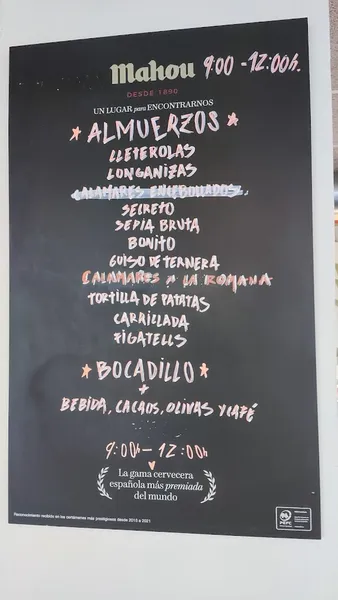 Mahou 9:00 - 12:00h.
DESDE 1890
UN LUGAR para ENCONTRARNOS
* ALMUERZOS *
LLETEROLAS
LONGANIZAS
CALAMARES ENCEBOLLADOS
SECRETO
SEPIA BRUTA
BONITO
GUISO DE TERNERA
CALAMARES A LA ROMANA
TORTILLA DE PATATAS
CARRILLADA
FIGATELLS
* BOCADILLO *
+
BEBIDA, CACAOS, OLIVAS Y CAFÉ
9:00h - 12:00h
La gama cervecera
española más premiada
del mundo
Reconocimiento recibido en los certámenes más prestigiosos desde 2015 a 2021
PEFC